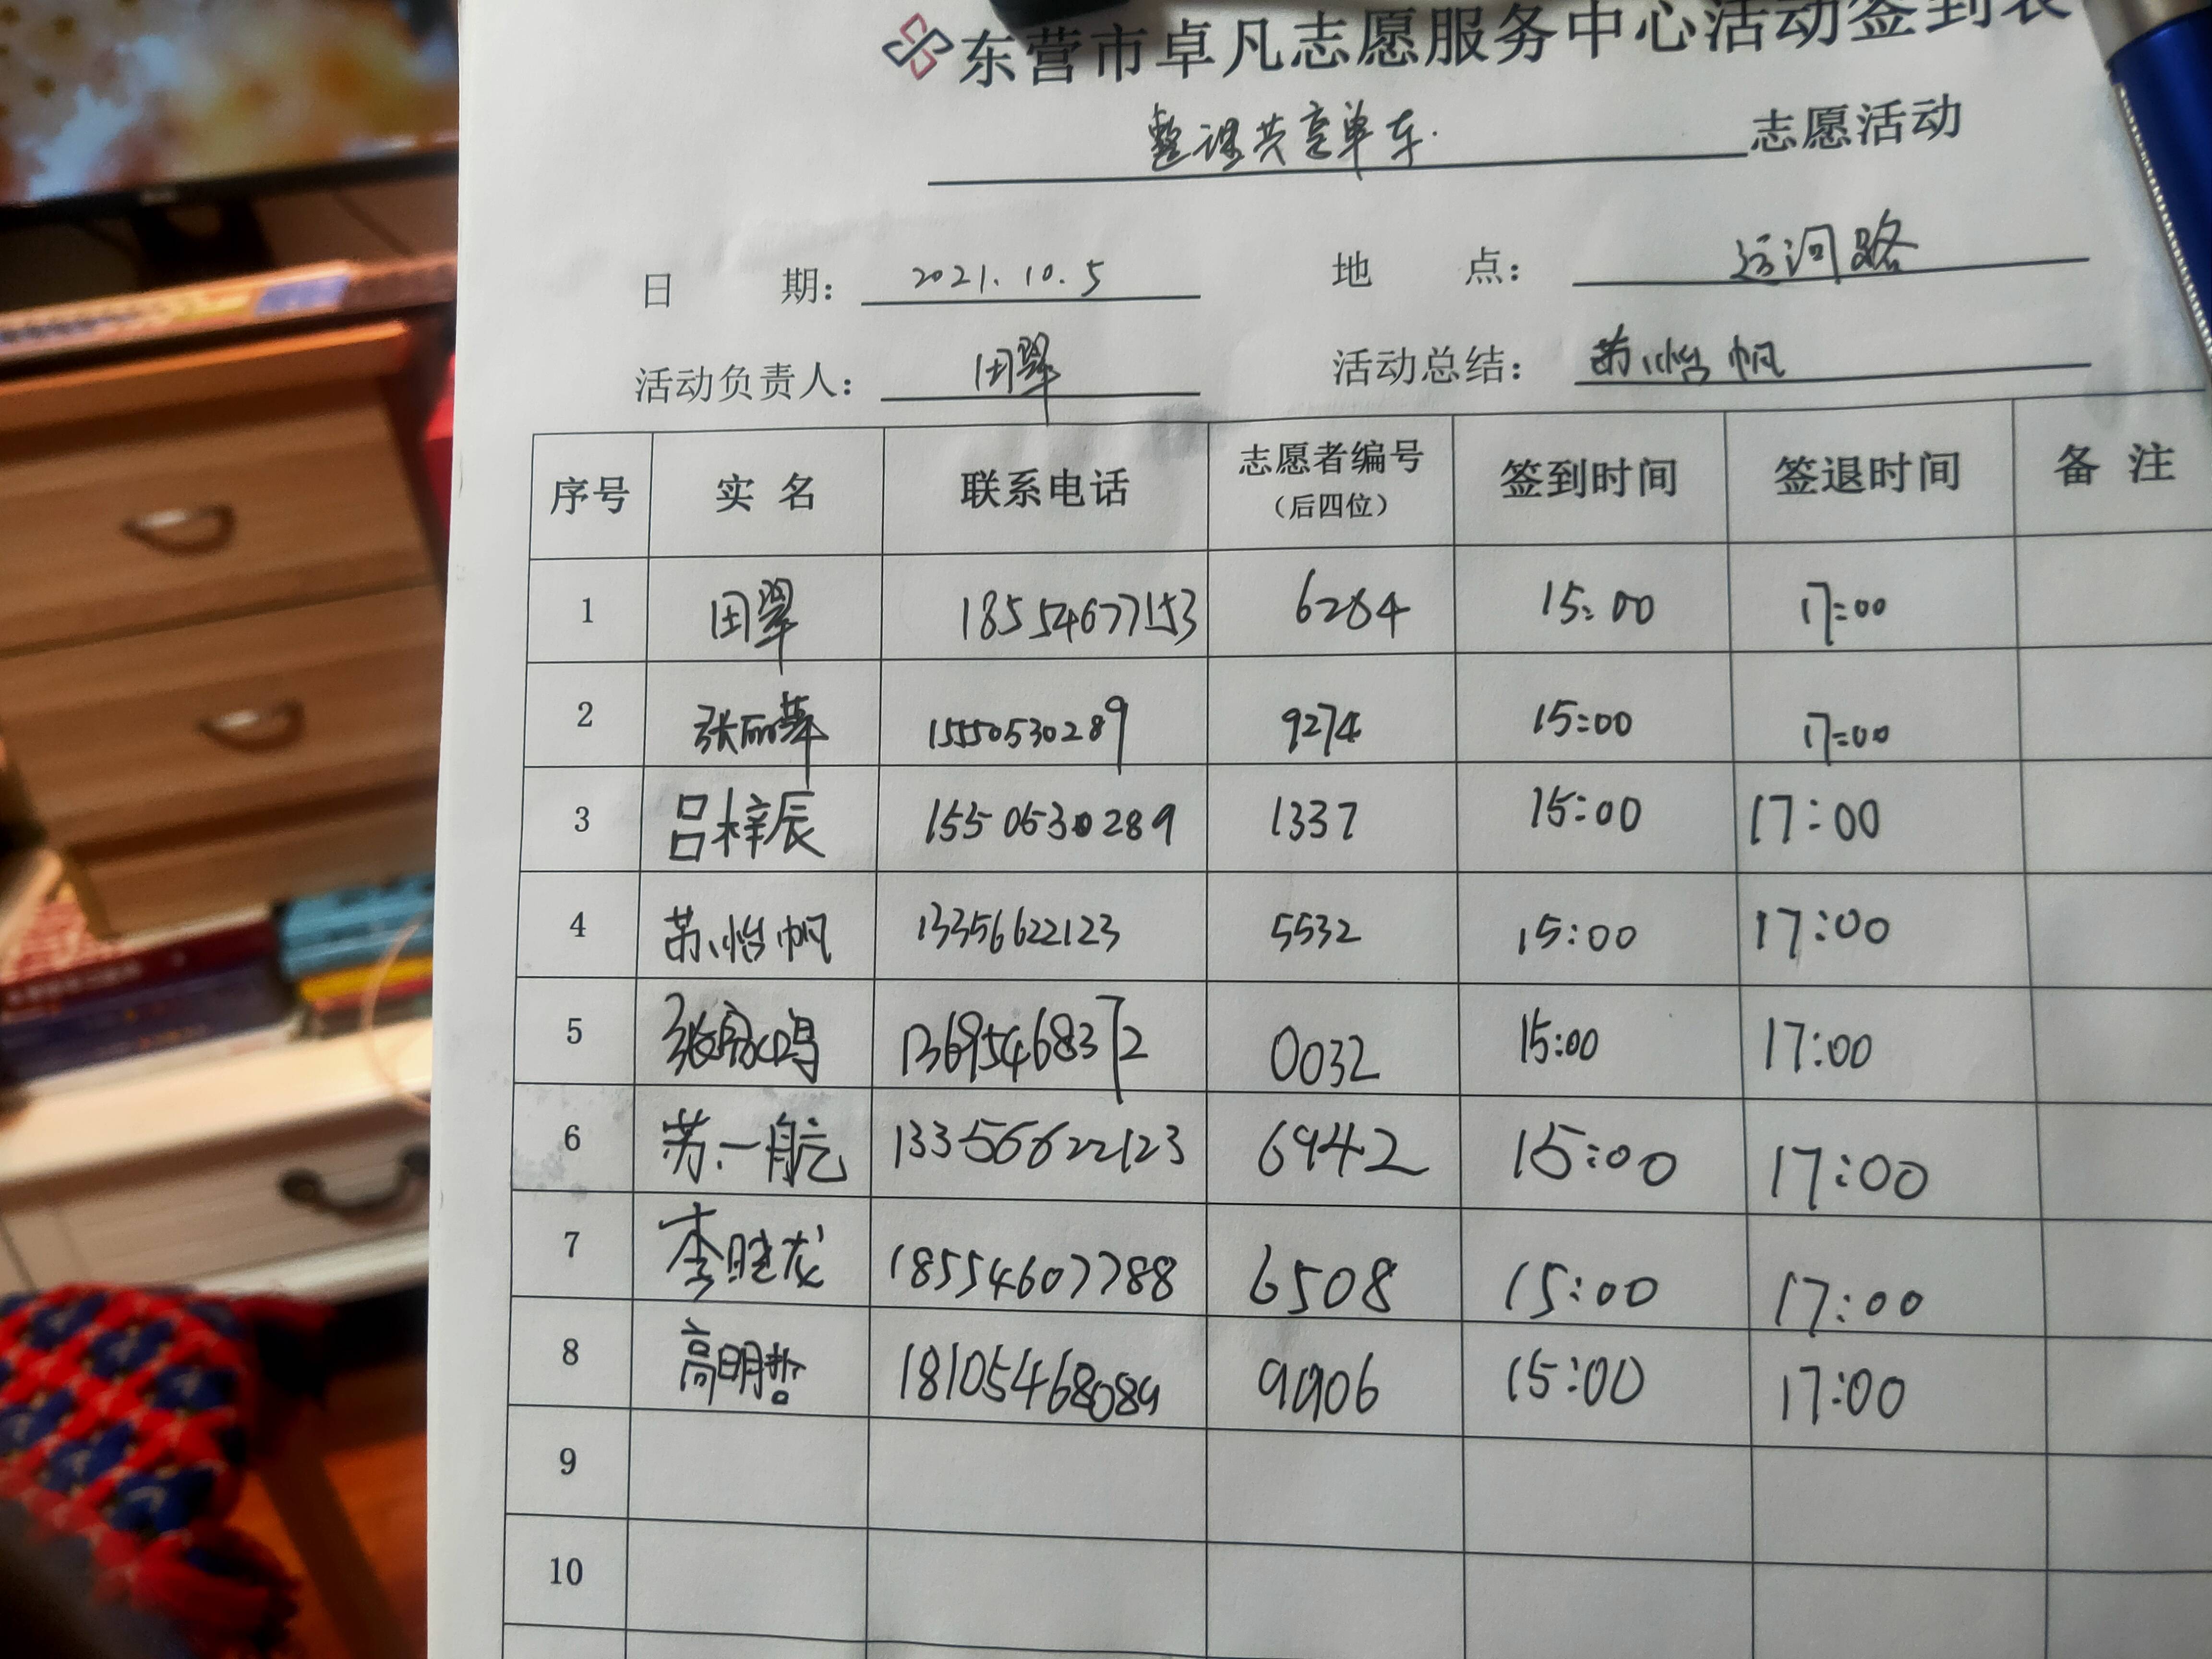 东营市卓凡志愿服务中心活动签到表
整理共享单车. 志愿活动
日 期： 2021.10.5 地 点： 运河路
活动负责人： 田翠 活动总结： 苏怡帆
序号 实 名 联系电话 志愿者编号（后四位） 签到时间 签退时间 备 注
1 田翠 18554677153 6284 15:00 17:00
2 张丽苹 15550530289 9274 15:00 17:00
3 吕梓辰 15505530289 1337 15:00 17:00
4 苏怡帆 13356622123 5532 15:00 17:00
5 张 鸣 13695468372 0032 15:00 17:00
6 苏一航 13356622123 6942 15:00 17:00
7 李 龙 18554607788 6508 15:00 17:00
8 高明哲 18105468089 9906 15:00 17:00
9
10